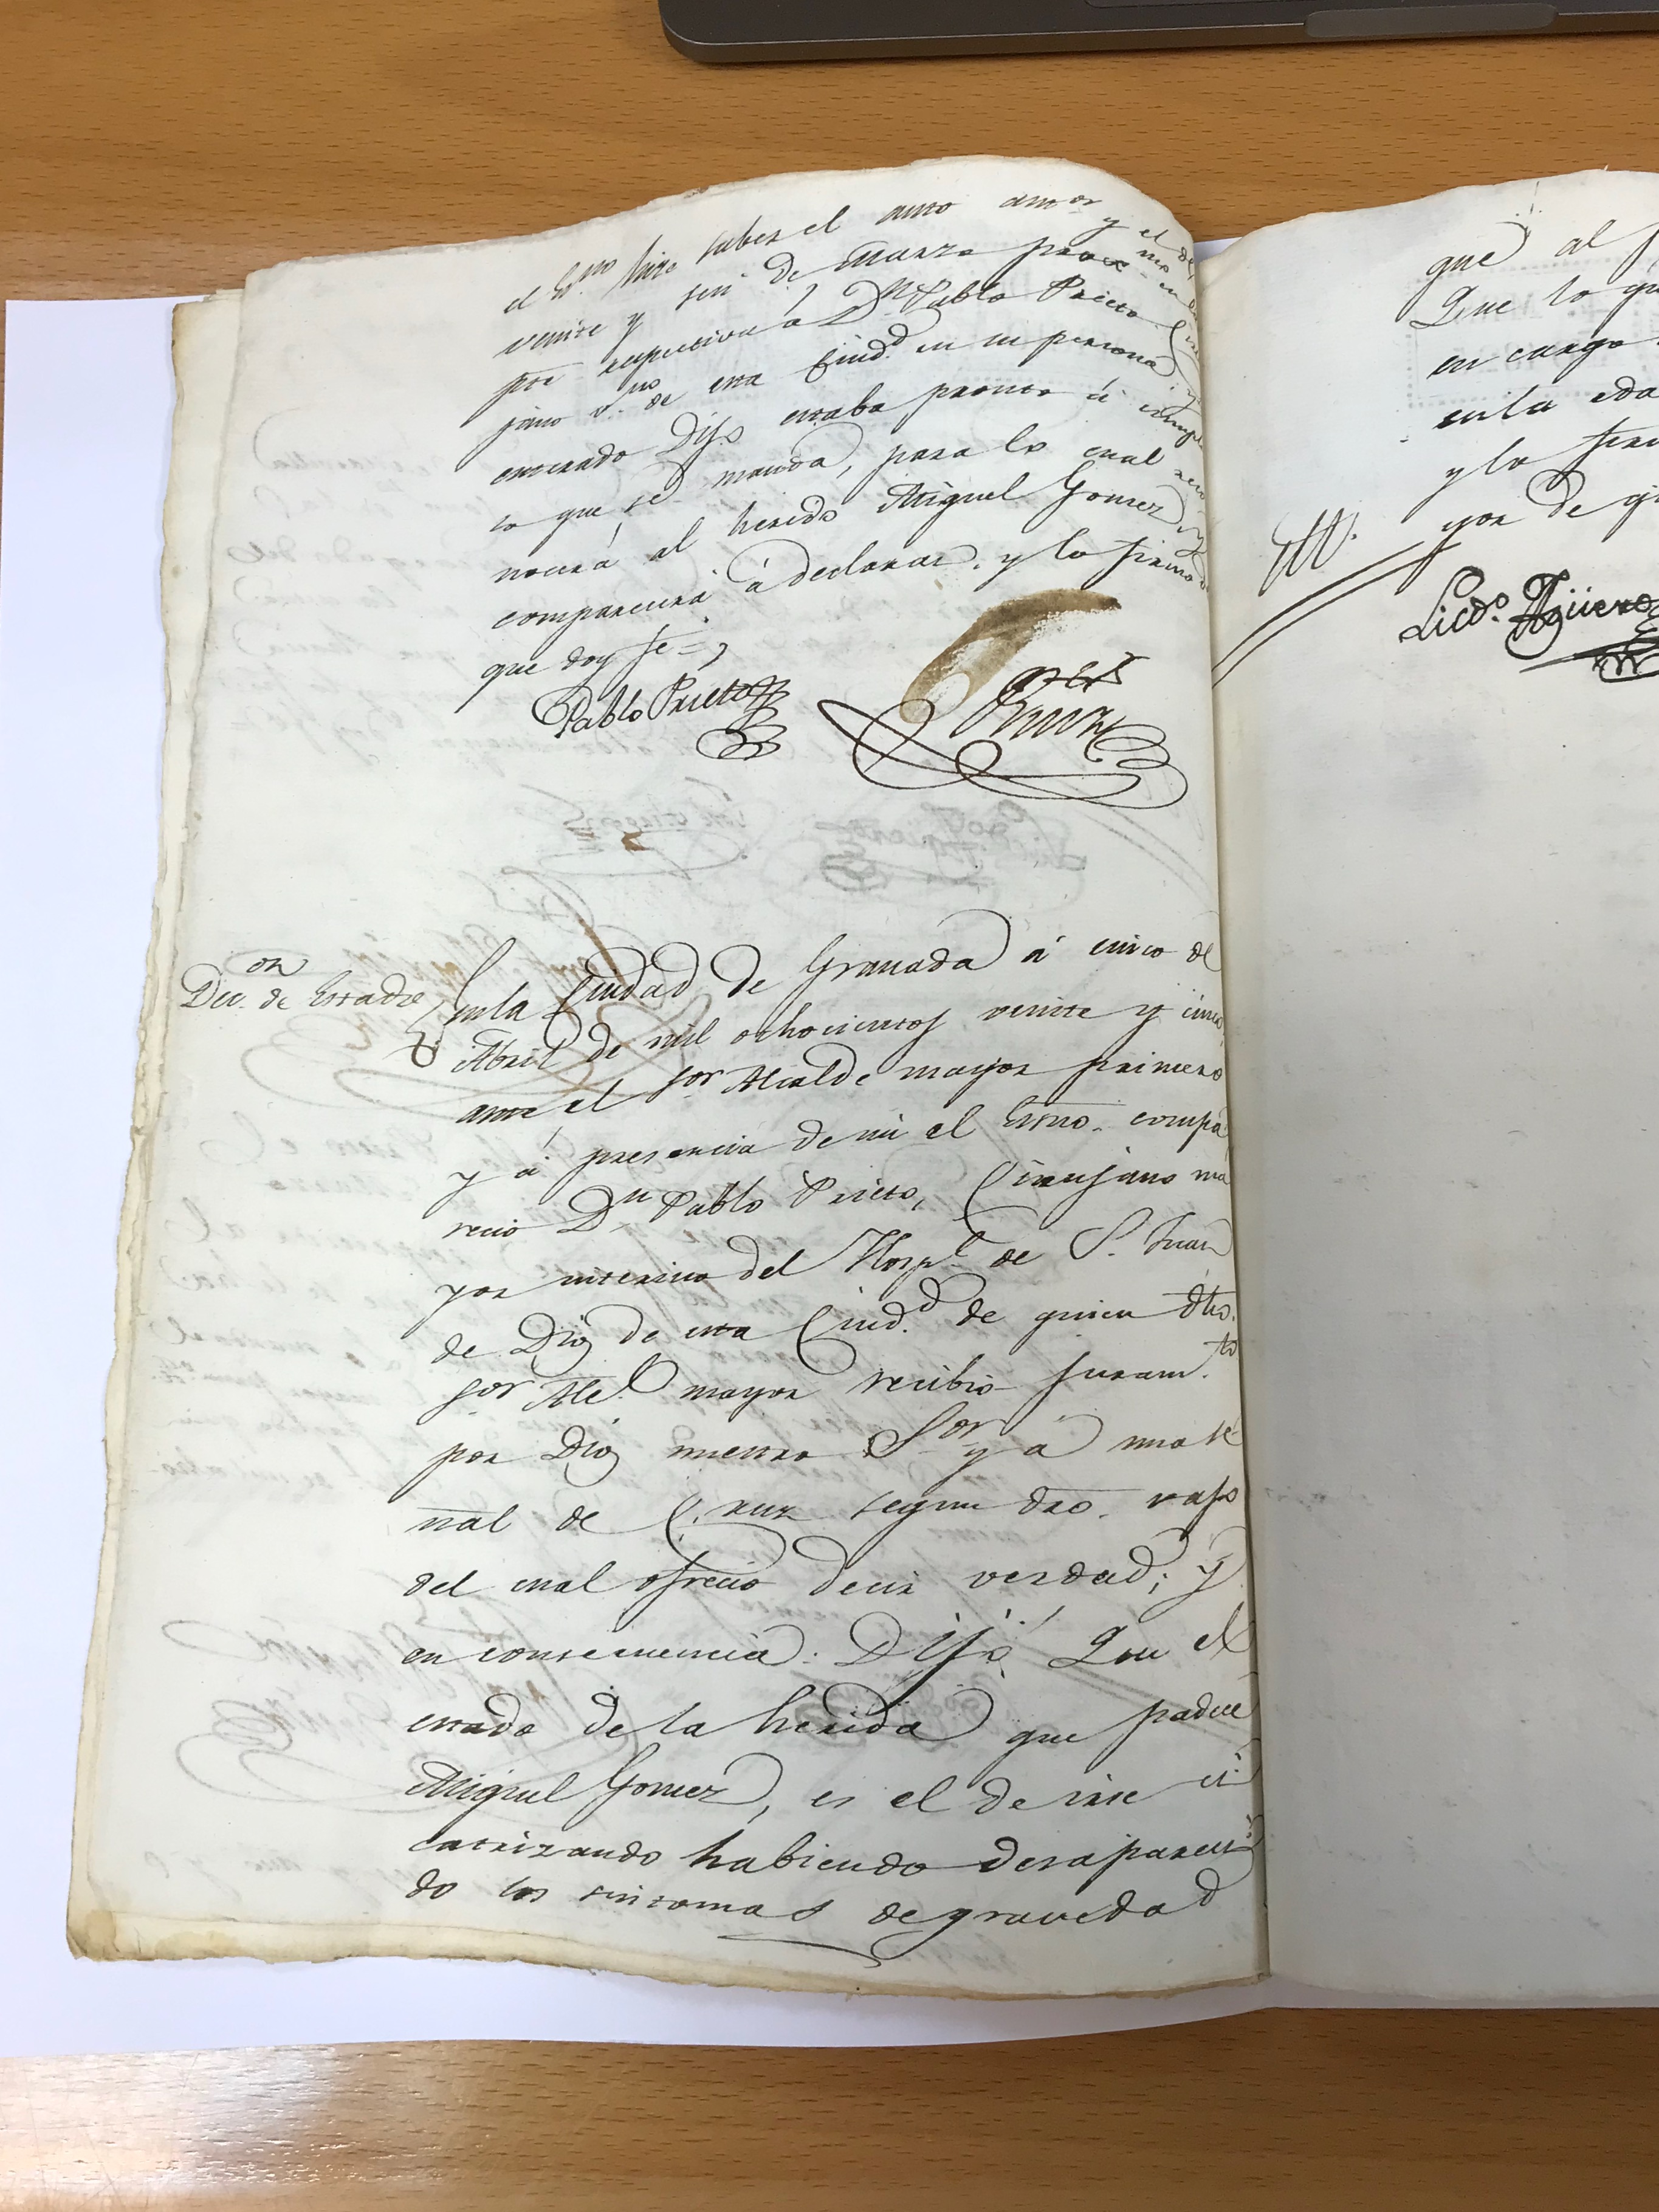 el Es.no hize saber el auto ant.or y el de
veinte y seis de Marzo prox.mo
por respectiva á D.n Pablo Prieto
jano v.no de esta Ciud.d en su persona y
enterado Dijo estaba pronto á cumpl
lo que se manda, para lo cual reco
nocerá al herido Miguel Gomez y
comparecerá á declarar. y lo firmo
que doy fe=
Pablo Prieto
Dec.on de Estado
En la Ciudad de Granada á cinco de
Abril de mil ochocientos veinte y cinco
ante el Sor Alcalde mayor primero
y á presencia de mi el Esno. compa
recio D.n Pablo Prieto, Cirujano ma
yor interino del Hosp.l de S. Juan
de Dios de esta Ciud.d de quien dho.
Sor Alc.e mayor recibio juram.to
por Dios nuestro S.or y á una se
ñal de Cruz segun dro. vajo
del cual ofrecio decir verdad; y
en consecuencia: Dijo: Que el
estado de la herida que padece
Miguel Gomez, es el de irse ci
catrizando habiendo desapareci
do los sintomas de gravedad
que al
Que lo qu
en cargo
en la eda
y lo firm
yor de q
Licdo. Agüero